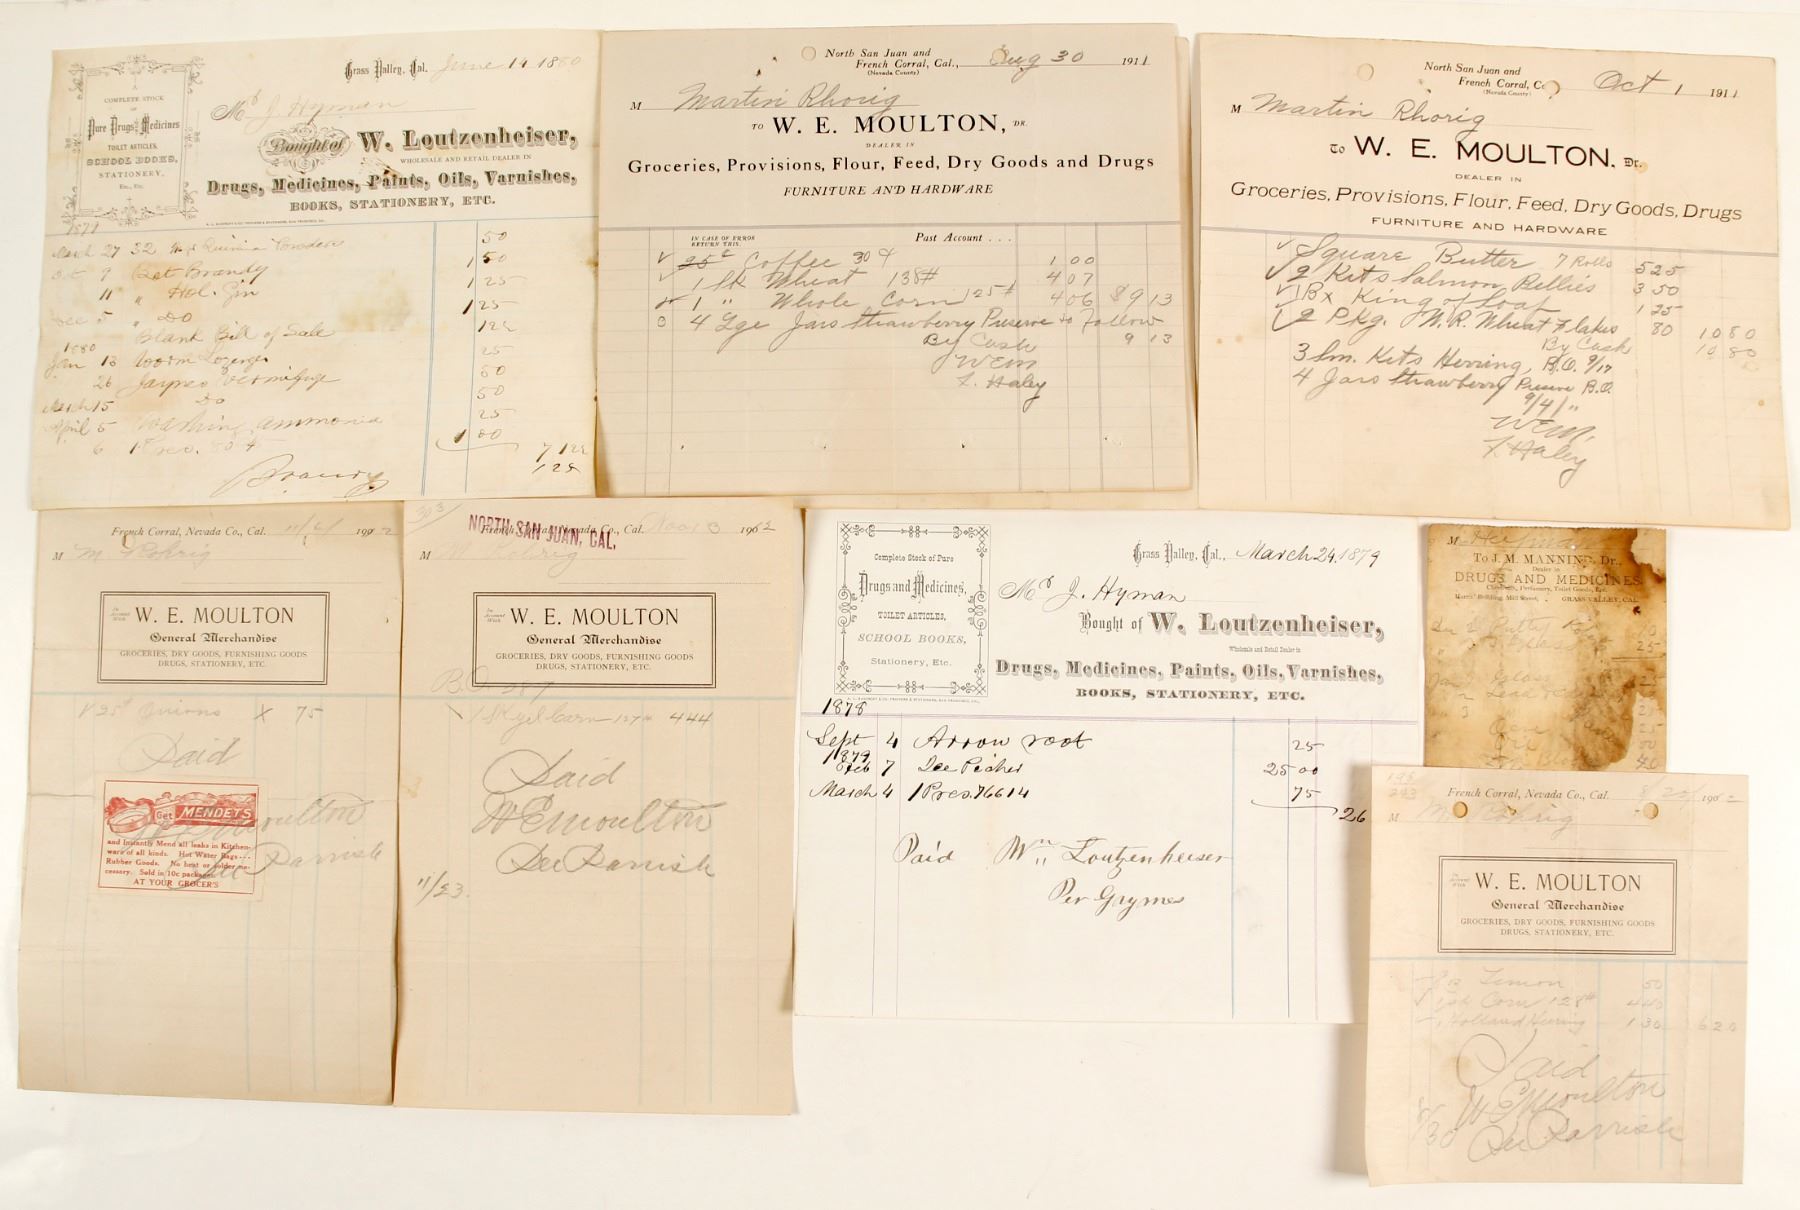 Grass Valley, Cal. June 14 1880
A
COMPLETE STOCK
OF
Pure Drugs and Medicines
TOILET ARTICLES,
SCHOOL BOOKS,
STATIONERY,
Etc., Etc.
Mr J. Hyman
Bought of W. Loutzenheiser,
WHOLESALE AND RETAIL DEALER IN
Drugs, Medicines, Paints, Oils, Varnishes,
BOOKS, STATIONERY, ETC.
1879
March 27 32 Quinia Powders 50
Oct 9 Bot Brandy 1 50
11 " Hol. Gin 1 25
Dec 5 " Do 1 25
Blank Bill of Sale 12½
1880
Jan 13 Worm Lozenges 25
26 Jaynes Vermifuge 50
March 15 Do 50
April 5 Washing Ammonia 25
6 1 Pres. 1 00
7 12½
Brandy
North San Juan and
French Corral, Cal., Aug 30 1911
(Nevada County)
M Martin Rhorig
TO W. E. MOULTON, DR.
DEALER IN
Groceries, Provisions, Flour, Feed, Dry Goods and Drugs
FURNITURE AND HARDWARE
IN CASE OF ERROR
RETURN THIS.
Past Account . . .
25¢ Coffee 30¢ 1 00
1 Sk Wheat 138# 4 07
1 " Whole Corn 125# 4 06 $9 13
4 Lge Jars Strawberry Preserve to Follow
By Cash 9 13
WEM
F. Haley
North San Juan and
French Corral, Oct 1 1911
(Nevada County)
M Martin Rhorig
To W. E. MOULTON, Dr.
DEALER IN
Groceries, Provisions, Flour, Feed, Dry Goods, Drugs
FURNITURE AND HARDWARE
Square Butter 7 Rolls 5 25
2 Kits Salmon Bellies 3 50
1 Bx King of Loaf 1 25
2 Pkg. W.R. Wheat Flakes 80 10 80
By Cash 10 80
3 Sm. Kits Herring, B.O. 9/17
4 Jars Strawberry Preserve B.O.
9/4/"
WEM.
F. Haley
French Corral, Nevada Co., Cal. 1902
M M Rohrig
In
Account
With
W. E. MOULTON
General Merchandise
GROCERIES, DRY GOODS, FURNISHING GOODS
DRUGS, STATIONERY, ETC.
25# Onions X 75
Paid
Get MENDETS
and Instantly Mend all leaks in Kitchen-
ware of all kinds. Hot Water Bags...
Rubber Goods. No heat or solder ne-
cessary. Sold in 10c packages.
AT YOUR GROCER'S
W E Moulton
Per Parrish
303
French Corral, Nevada Co., Cal. Nov 3 1902
NORTH SAN JUAN, CAL.
M M Rohrig
In
Account
With
W. E. MOULTON
General Merchandise
GROCERIES, DRY GOODS, FURNISHING GOODS
DRUGS, STATIONERY, ETC.
B.O. 287
1 Sk Yel Corn 127# 4 44
Paid
W E Moulton
Per Parrish
11/23.
Complete Stock of Pure
Drugs and Medicines,
TOILET ARTICLES,
SCHOOL BOOKS,
Stationery, Etc.
Grass Valley, Cal., March 24, 1879
Mr J. Hyman
Bought of W. Loutzenheiser,
Wholesale and Retail Dealer in
Drugs, Medicines, Paints, Oils, Varnishes,
BOOKS, STATIONERY, ETC.
1878
Sept 4 Arrow root 25
1879
Feb 7 Ice Picher 25 00
March 4 1 Pres. 76614 75
26
Paid Wm Loutzenheiser
Per Gaymes
M Heyman
To J. M. MANNING, Dr.,
Dealer in
DRUGS AND MEDICINES
Chemicals, Perfumery, Toilet Goods, Etc.
Morris' Building, Mill Street, GRASS VALLEY, CAL.
Putty
25
Glass
Lead
3
40
French Corral, Nevada Co., Cal. 8/20/ 1902
M M Rohrig
In
Account
With
W. E. MOULTON
General Merchandise
GROCERIES, DRY GOODS, FURNISHING GOODS
DRUGS, STATIONERY, ETC.
Lemon 50
1 sk Corn 128# 4 40
1 Holland Herring 1 30 6 20
Paid
W E Moulton
Per Parrish
8/30